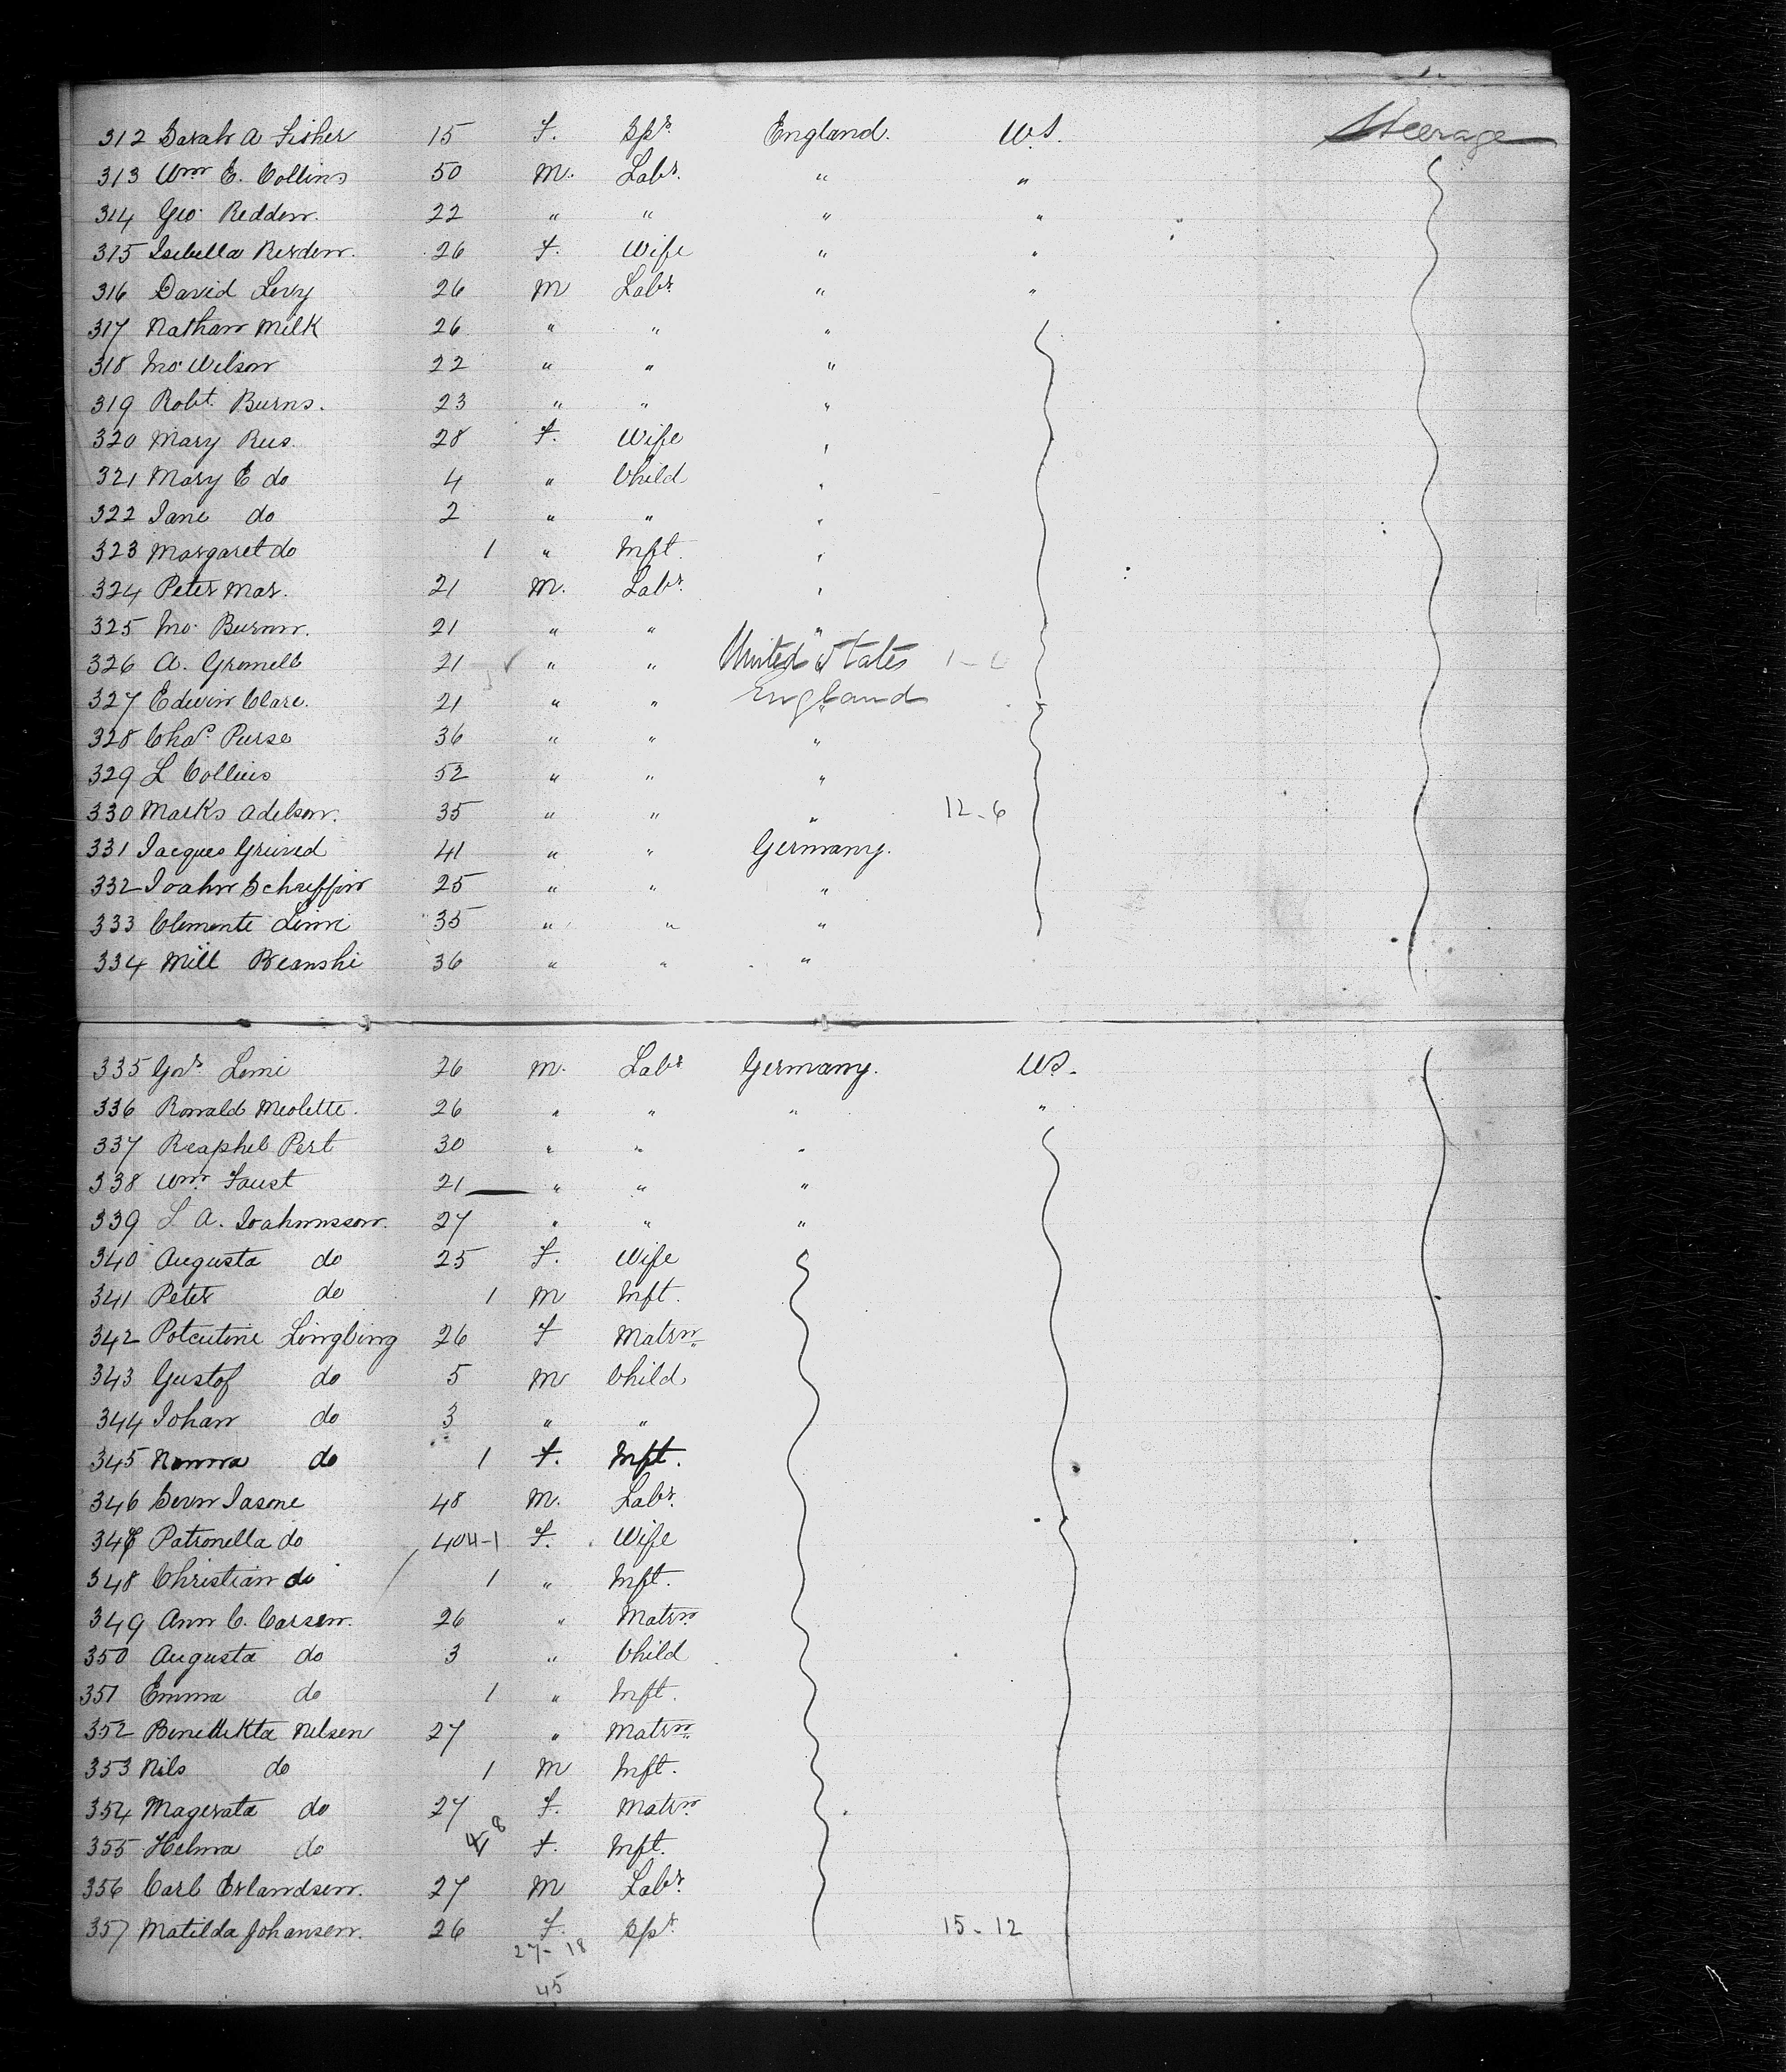 312 Sarah A Fisher 15 F. Spr. England. U.S. Steerage
313 Wm E. Collins 50 M. Labr. " "
314 Geo. Redden. 22 " " " "
315 Isebella Resden. 26 F. Wife " "
316 David Levy 26 M Labr " "
317 Nathan Milk 26 " " "
318 Jno. Wilson 22 " " "
319 Robt. Burns. 23 " " "
320 Mary Rus. 28 F. Wife "
321 Mary E do 4 " Child "
322 Jane do 2 " " "
323 Margaret do 1 " Inft. "
324 Peter Mar. 21 M. Labr. "
325 Jno. Burnn. 21 " " "
326 A. Gromell 21 " " United States
327 Edwin Clare. 21 " " England
328 Chas. Purse 36 " " "
329 L Collins 52 " " "
330 Marks Adelson. 35 " " " 12-6
331 Jacques 41 " " Germany.
332 25 " " "
333 Clemente 35 " " "
334 Mill 36 " " "
335 Lemi 26 M. Labr Germany. U.S.
336 Ronald Meolette. 26 " " " "
337 Reaphel Pert 30 " " "
338 Wm. Faust 21 " " "
339 A. Joahnnsson. 27 " " "
340 Augusta do 25 F. Wife
341 Peter do 1 M Inft.
342 26 F Matrn
343 Gustof do 5 M Child
344 Johan do 3 " "
345 do 1 F. Inft.
346 Jasone 48 M. Labr.
347 Patronella do 40 F. Wife
348 Christian do 1 " Inft.
349 Ann C. Carsen. 26 " Matrn
350 Augusta do 3 " Child
351 Emma do 1 " Inft.
352 Benedikta Nelsen 27 " Matrn
353 Nils do 1 M Inft.
354 Magerata do 27 F. Matrn
355 Helma do 8 F. Inft.
356 Carl Erlandsen. 27 M Labr.
357 Matilda Johansen. 26 F. Spr 15-12
27-18
45